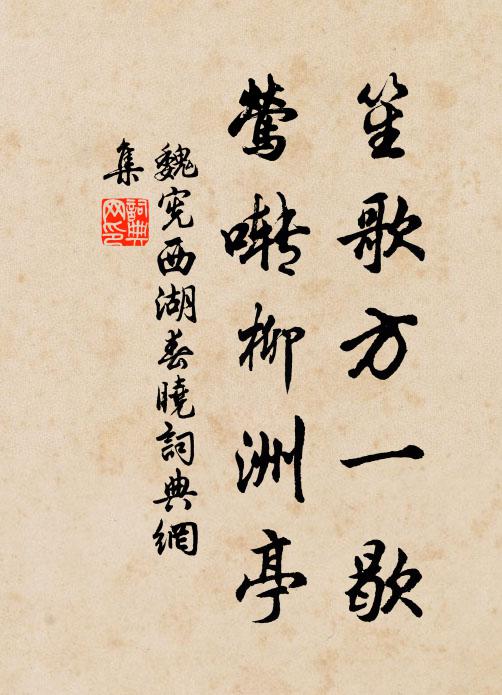 笙歌方一歇
鶯啭柳洲亭
魏宪西湖春曉詞典網
集
詞典
网印